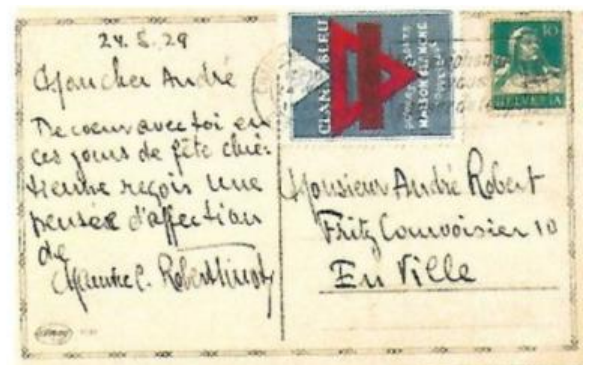 24. 5. 29
Mon cher André
De coeur avec toi en
ces jours de fête chré-
tienne reçois une
pensée d'affection
de
CLAN BLEU
MAISON
10
HELVETIA
Monsieur André Robert
Fritz Courvoisier 10
En Ville